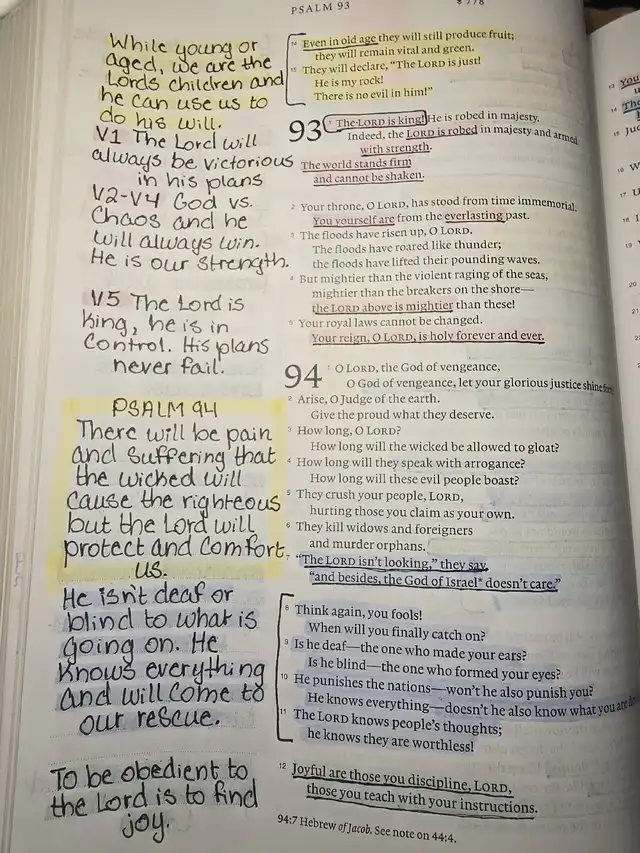 PSALM 93
778
While young or
aged, we are the
Lords children and
he can use us to
do his will.
V1 The Lord will
always be victorious
in his plans
V2-V4 God vs.
Chaos and he
will always win.
He is our strength.
V5 The Lord is
King, he is in
Control. His plans
never fail.
PSALM 94
There will be pain
and suffering that
the wicked will
cause the righteous
but the Lord will
protect and comfort
us.
He isn't deaf or
blind to what is
going on. He
Knows everything
and will come to
our rescue.
To be obedient to
the Lord is to find
joy.
14 Even in old age they will still produce fruit;
they will remain vital and green.
15 They will declare, "The LORD is just!
He is my rock!
There is no evil in him!"
93 1 The LORD is king! He is robed in majesty.
Indeed, the LORD is robed in majesty and armed
with strength.
The world stands firm
and cannot be shaken.
2 Your throne, O LORD, has stood from time immemorial.
You yourself are from the everlasting past.
3 The floods have risen up, O LORD.
The floods have roared like thunder;
the floods have lifted their pounding waves.
4 But mightier than the violent raging of the seas,
mightier than the breakers on the shore—
the LORD above is mightier than these!
5 Your royal laws cannot be changed.
Your reign, O LORD, is holy forever and ever.
94 1 O LORD, the God of vengeance,
O God of vengeance, let your glorious justice shine
2 Arise, O Judge of the earth.
Give the proud what they deserve.
3 How long, O LORD?
How long will the wicked be allowed to gloat?
4 How long will they speak with arrogance?
How long will these evil people boast?
5 They crush your people, LORD,
hurting those you claim as your own.
6 They kill widows and foreigners
and murder orphans.
7 "The LORD isn't looking," they say,
"and besides, the God of Israel* doesn't care."
8 Think again, you fools!
When will you finally catch on?
9 Is he deaf—the one who made your ears?
Is he blind—the one who formed your eyes?
10 He punishes the nations—won't he also punish you?
He knows everything—doesn't he also know what you are
11 The LORD knows people's thoughts;
he knows they are worthless!
12 Joyful are those you discipline, LORD,
those you teach with your instructions.
94:7 Hebrew of Jacob. See note on 44:4.